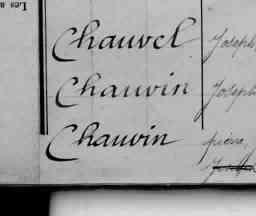 Chauvel Joseph
Chauvin Joseph
Chauvin pierre,